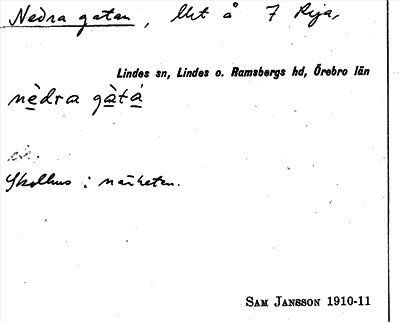 Nedra gatan, Ukt å 7 Rya,
Lindes sn, Lindes o. Ramsbergs hd, Örebro län
nèdra gàtá
Skolhus i närheten.
SAM JANSSON 1910-11